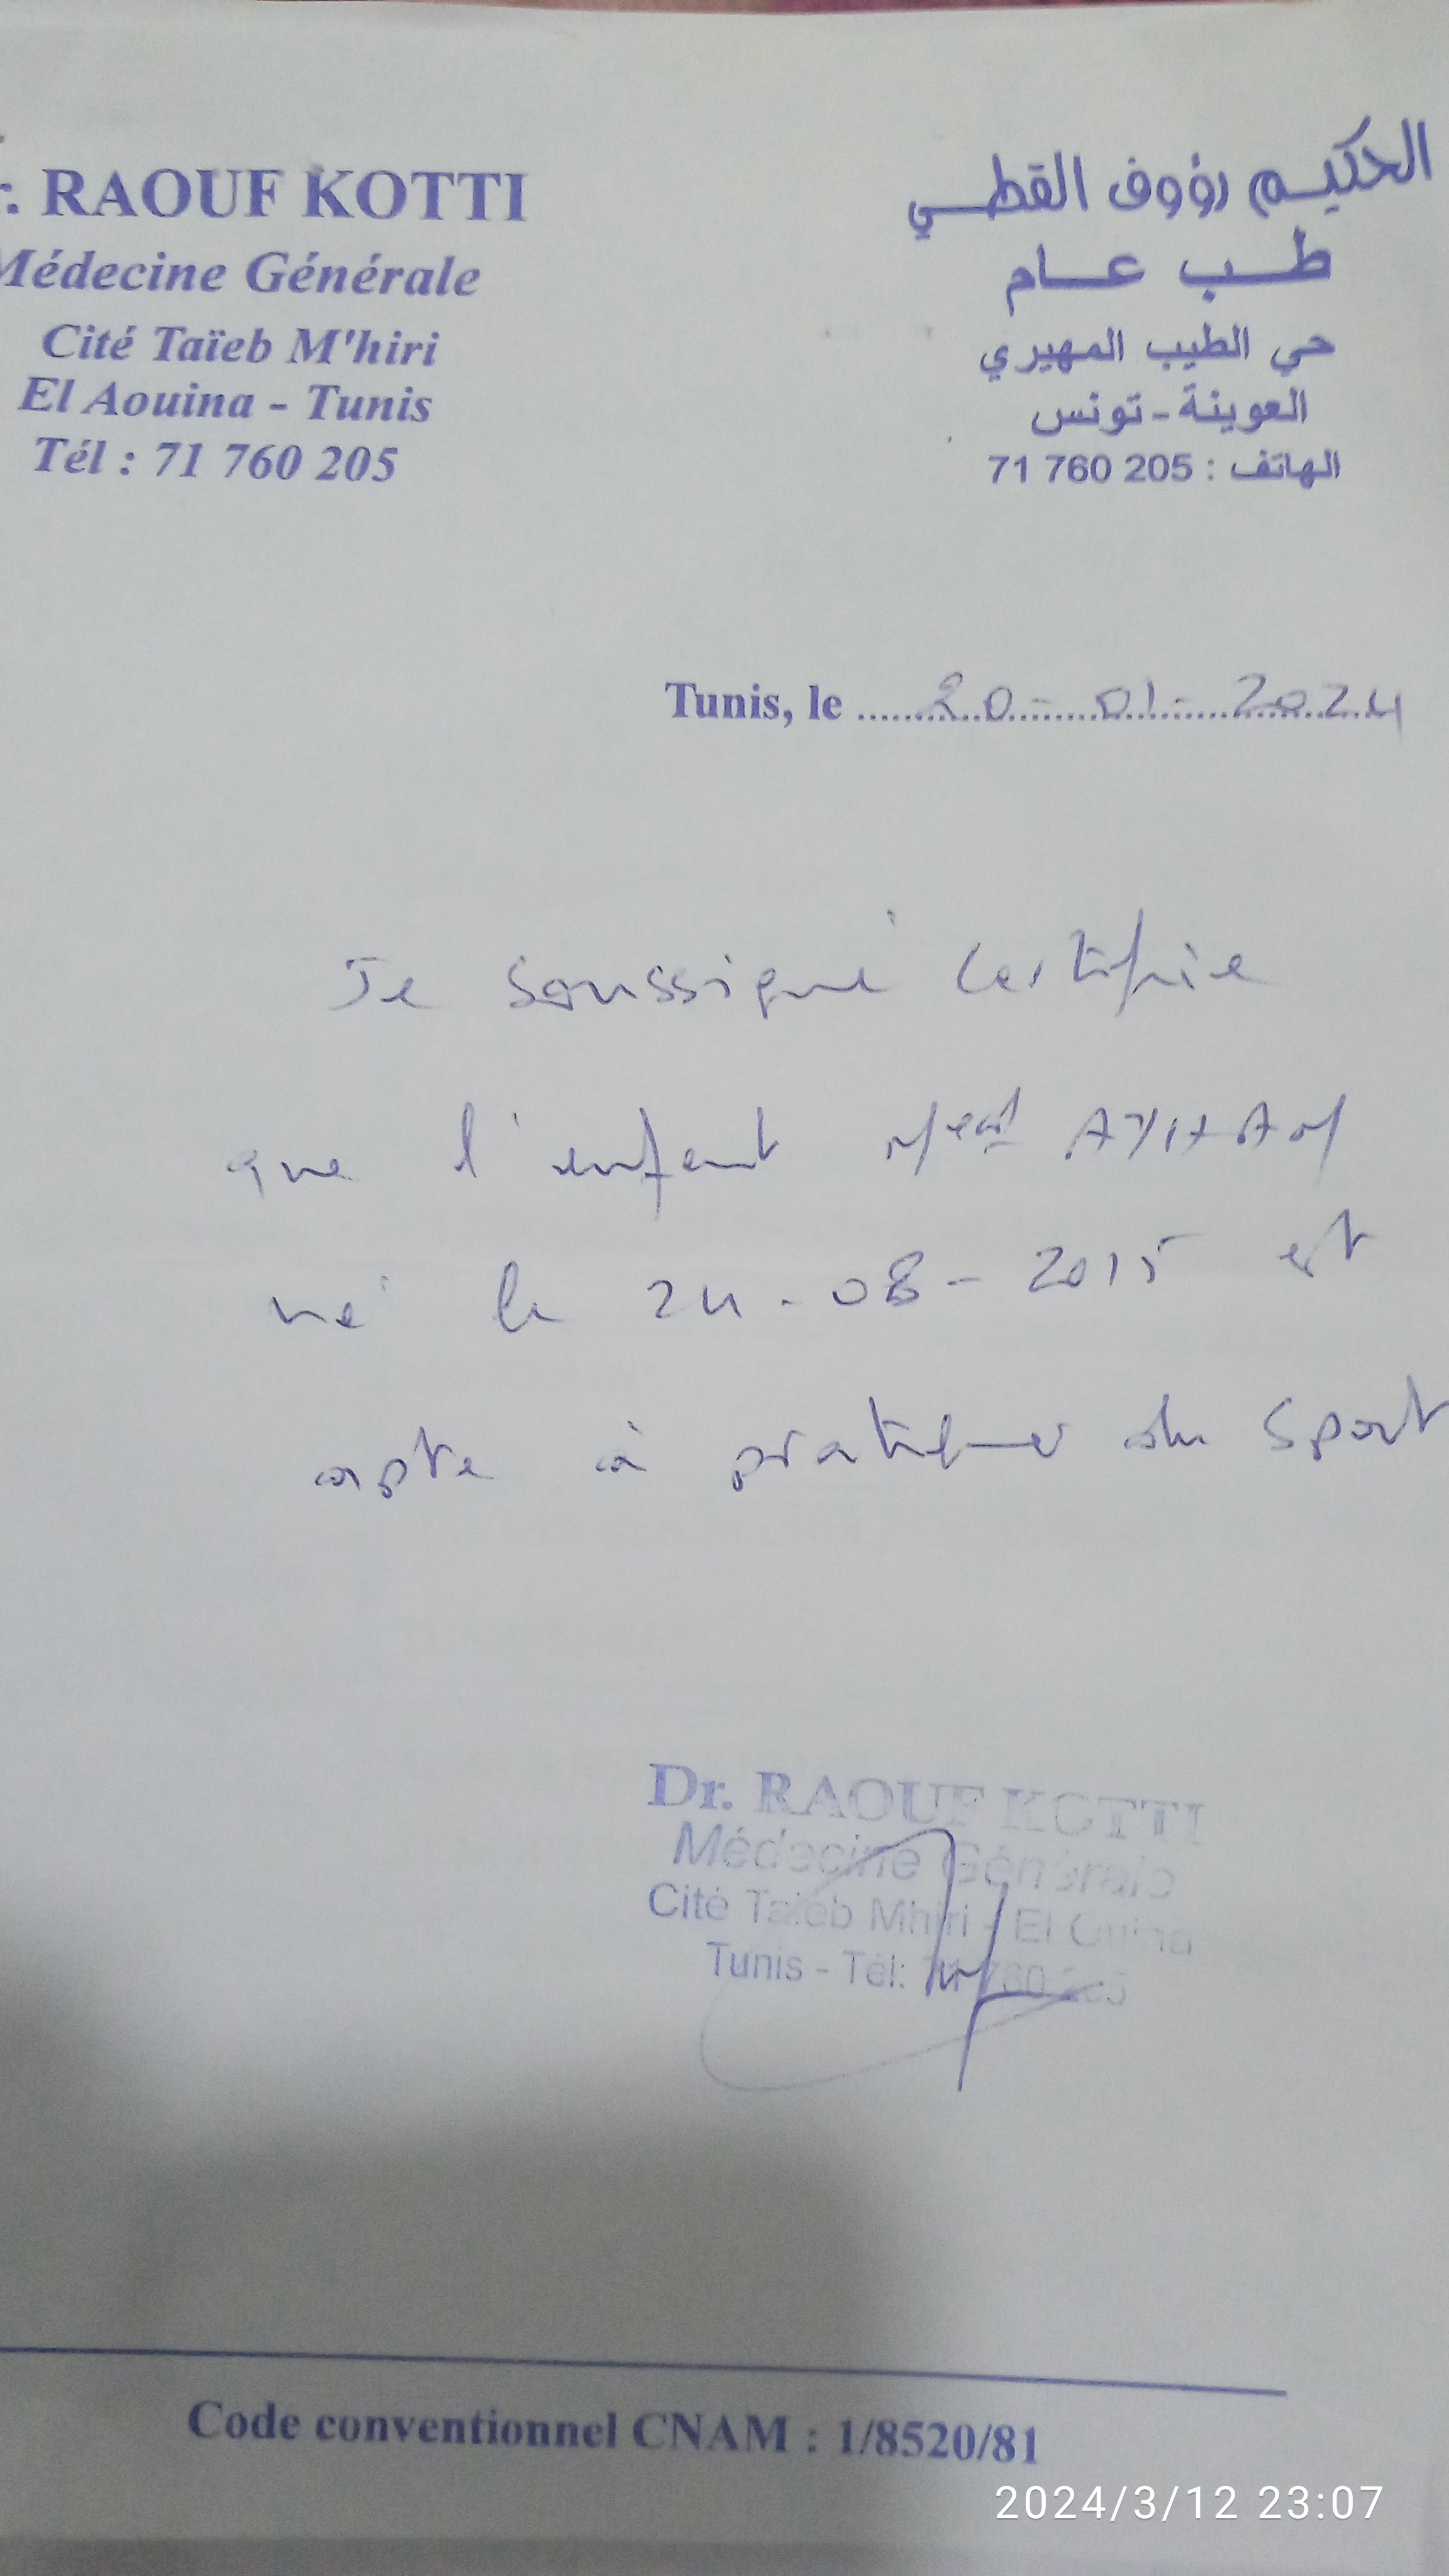 r. RAOUF KOTTI
Médecine Générale
Cité Taïeb M'hiri
El Aouina - Tunis
Tél : 71 760 205
الحكيم رؤوف القطي
طب عام
حي الطيب المهيري
العوينة - تونس
الهاتف : 205 760 71
Tunis, le 20-01-2024
Je soussigné certifie
que l'enfant Med AYHAM
né le 24-08-2015 est
apte à pratiquer du sport
Dr. RAOUF KOTTI
Médecine Générale
Cité Taïeb Mhiri - El Ouina
Tunis - Tél: 71 760 205
Code conventionnel CNAM : 1/8520/81
2024/3/12 23:07